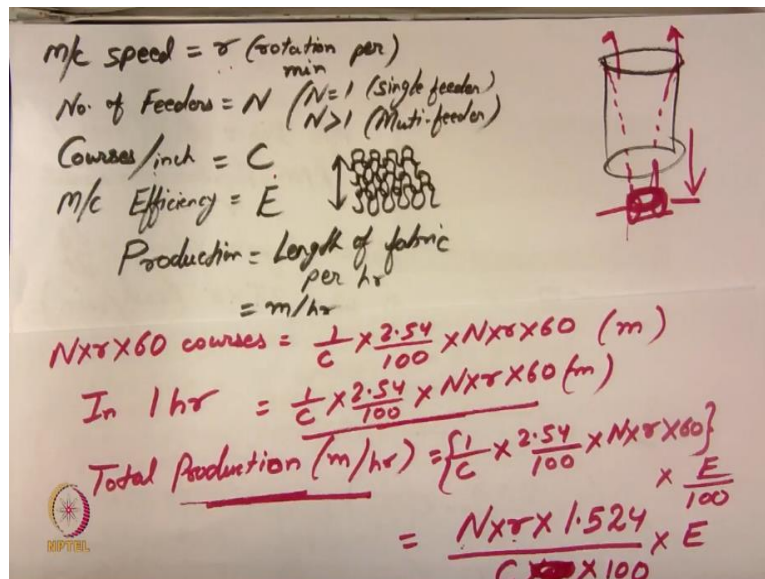 M/c speed = r (rotation per min)
No. of Feeders = N (N=1 (single feeder)
N>1 (Muti-feeder)
Courses/inch = C
M/c Efficiency = E
Production = Length of fabric
per hr
= m/hr
N×r×60 courses = 1/C × 2.54/100 × N×r×60 (m)
In 1 hr = 1/C × 2.54/100 × N×r×60 (m)
Total Production (m/hr) = {1/C × 2.54/100 × N×r×60}
× E/100
= N×r×1.524/C × 100 × E
NPTEL